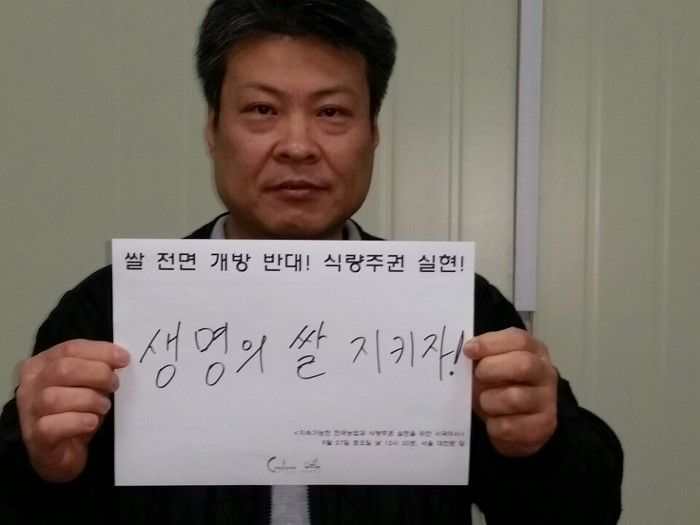 쌀 전면 개방 반대! 식량주권 실현!
생명의 쌀 지키자!
<지속가능한 한국농업과 식량주권 실현을 위한 시국미사>
9월 27일 토요일 낮 12시 30분, 서울 대한문 앞